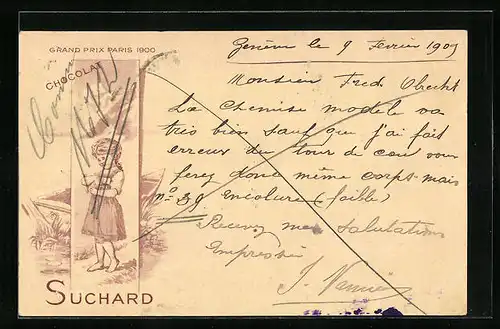 GRAND PRIX PARIS 1900
CHOCOLAT
SUCHARD
Genève le 9 Février 1909
Monsieur Fred Obrecht
La chemise modele va
très bien sauf que j'ai fait
erreur du tour de cou vous
ferez donc même corps mais
no 39 encolure (faible)
Recevez mes salutations
Empressées